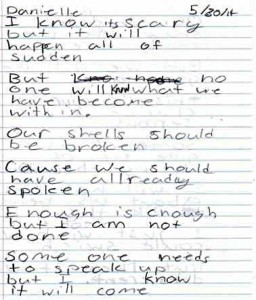 Danielle 5/30/11
I know its scary
but it will
happen all of
sudden
But no
one will know what we
have become
with in.
Our shells should
be broken
Cause we should
have allready
spoken
Enough is enough
but I am not
done
Some one needs
to speak up
but I know
it will come